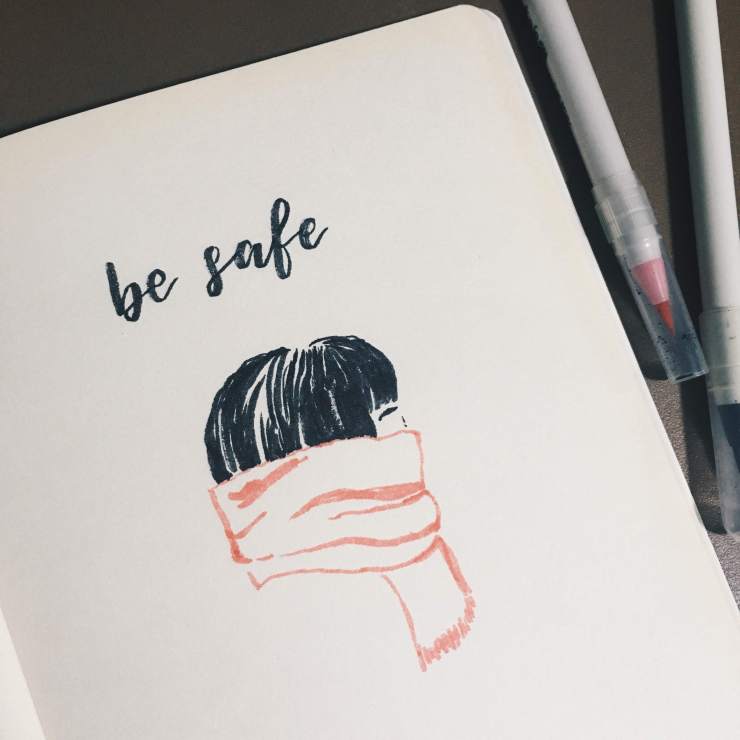 be safe